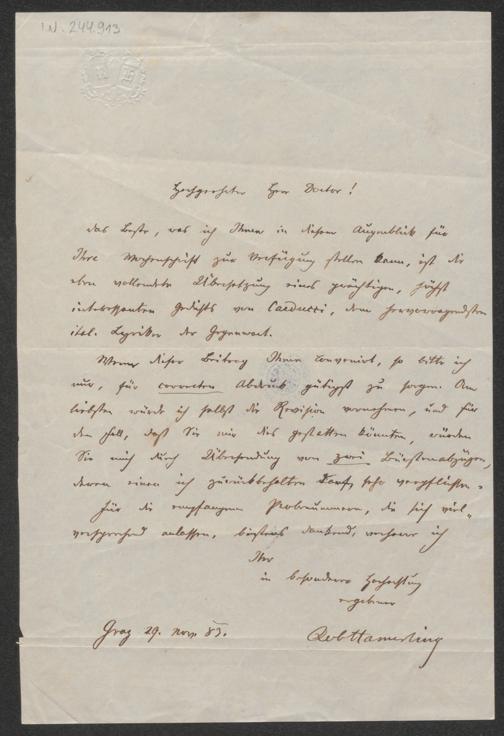 I.N. 244.913
Hochgeehrter Herr Doctor!
das Beste, was ich Ihnen in diesem Augenblick für
Ihre Wochenschrift zur Verfügung stellen kann, ist die
eben vollendete Übersetzung eines prächtigen, höchst
interessanten Gedichts von Carducci, dem hervorragendsten
ital. Lyriker der Gegenwart.
Wenn dieser Beitrag Ihnen convenirt, so bitte ich
nur, für correcten Abdruck gütigst zu sorgen. Am
liebsten würde ich selbst die Revision vornehmen, und für
den Fall, daß Sie mir dies gestatten könnten, würden
Sie mich durch Übersendung von zwei Bürstenabzügen,
deren einen ich zurückbehalten darf, sehr verpflichten.
Für die empfangenen Probenummern, die sich viel-
versprechend anlassen, bestens dankend, verharre ich
Ihr
in besonderer Hochachtung
ergebener
Graz 29. Nov. 83.
Rob Hamerling